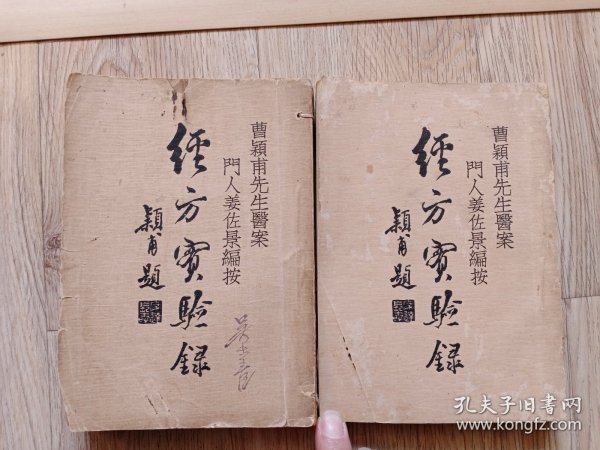 曹穎甫先生醫案
門人姜佐景編按
經方實驗錄
穎甫題
曹穎甫先生醫案
門人姜佐景編按
經方實驗錄
穎甫題
孔夫子旧书网
www.kongfz.com